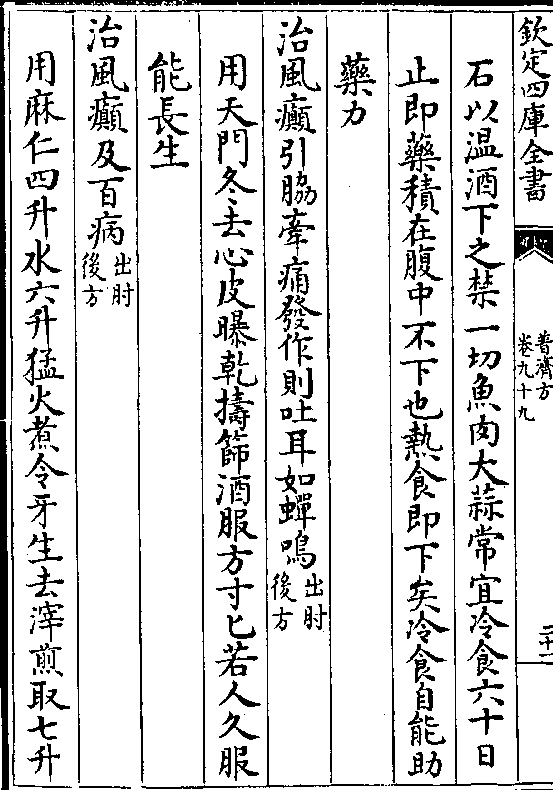 欽定四庫全書
普濟方
卷九十九
二十一
石以温酒下之禁一切魚肉大蒜常宜冷食六十日
止即藥積在腹中不下也熱食即下矣冷食自能助
藥力
治風癲引脇牽痛發作則吐耳如蟬鳴出肘後方
用天門冬去心皮曝乾擣篩酒服方寸匕若人久服
能長生
治風癲及百病出肘後方
用麻仁四升水六升猛火煮令牙生去滓煎取七升